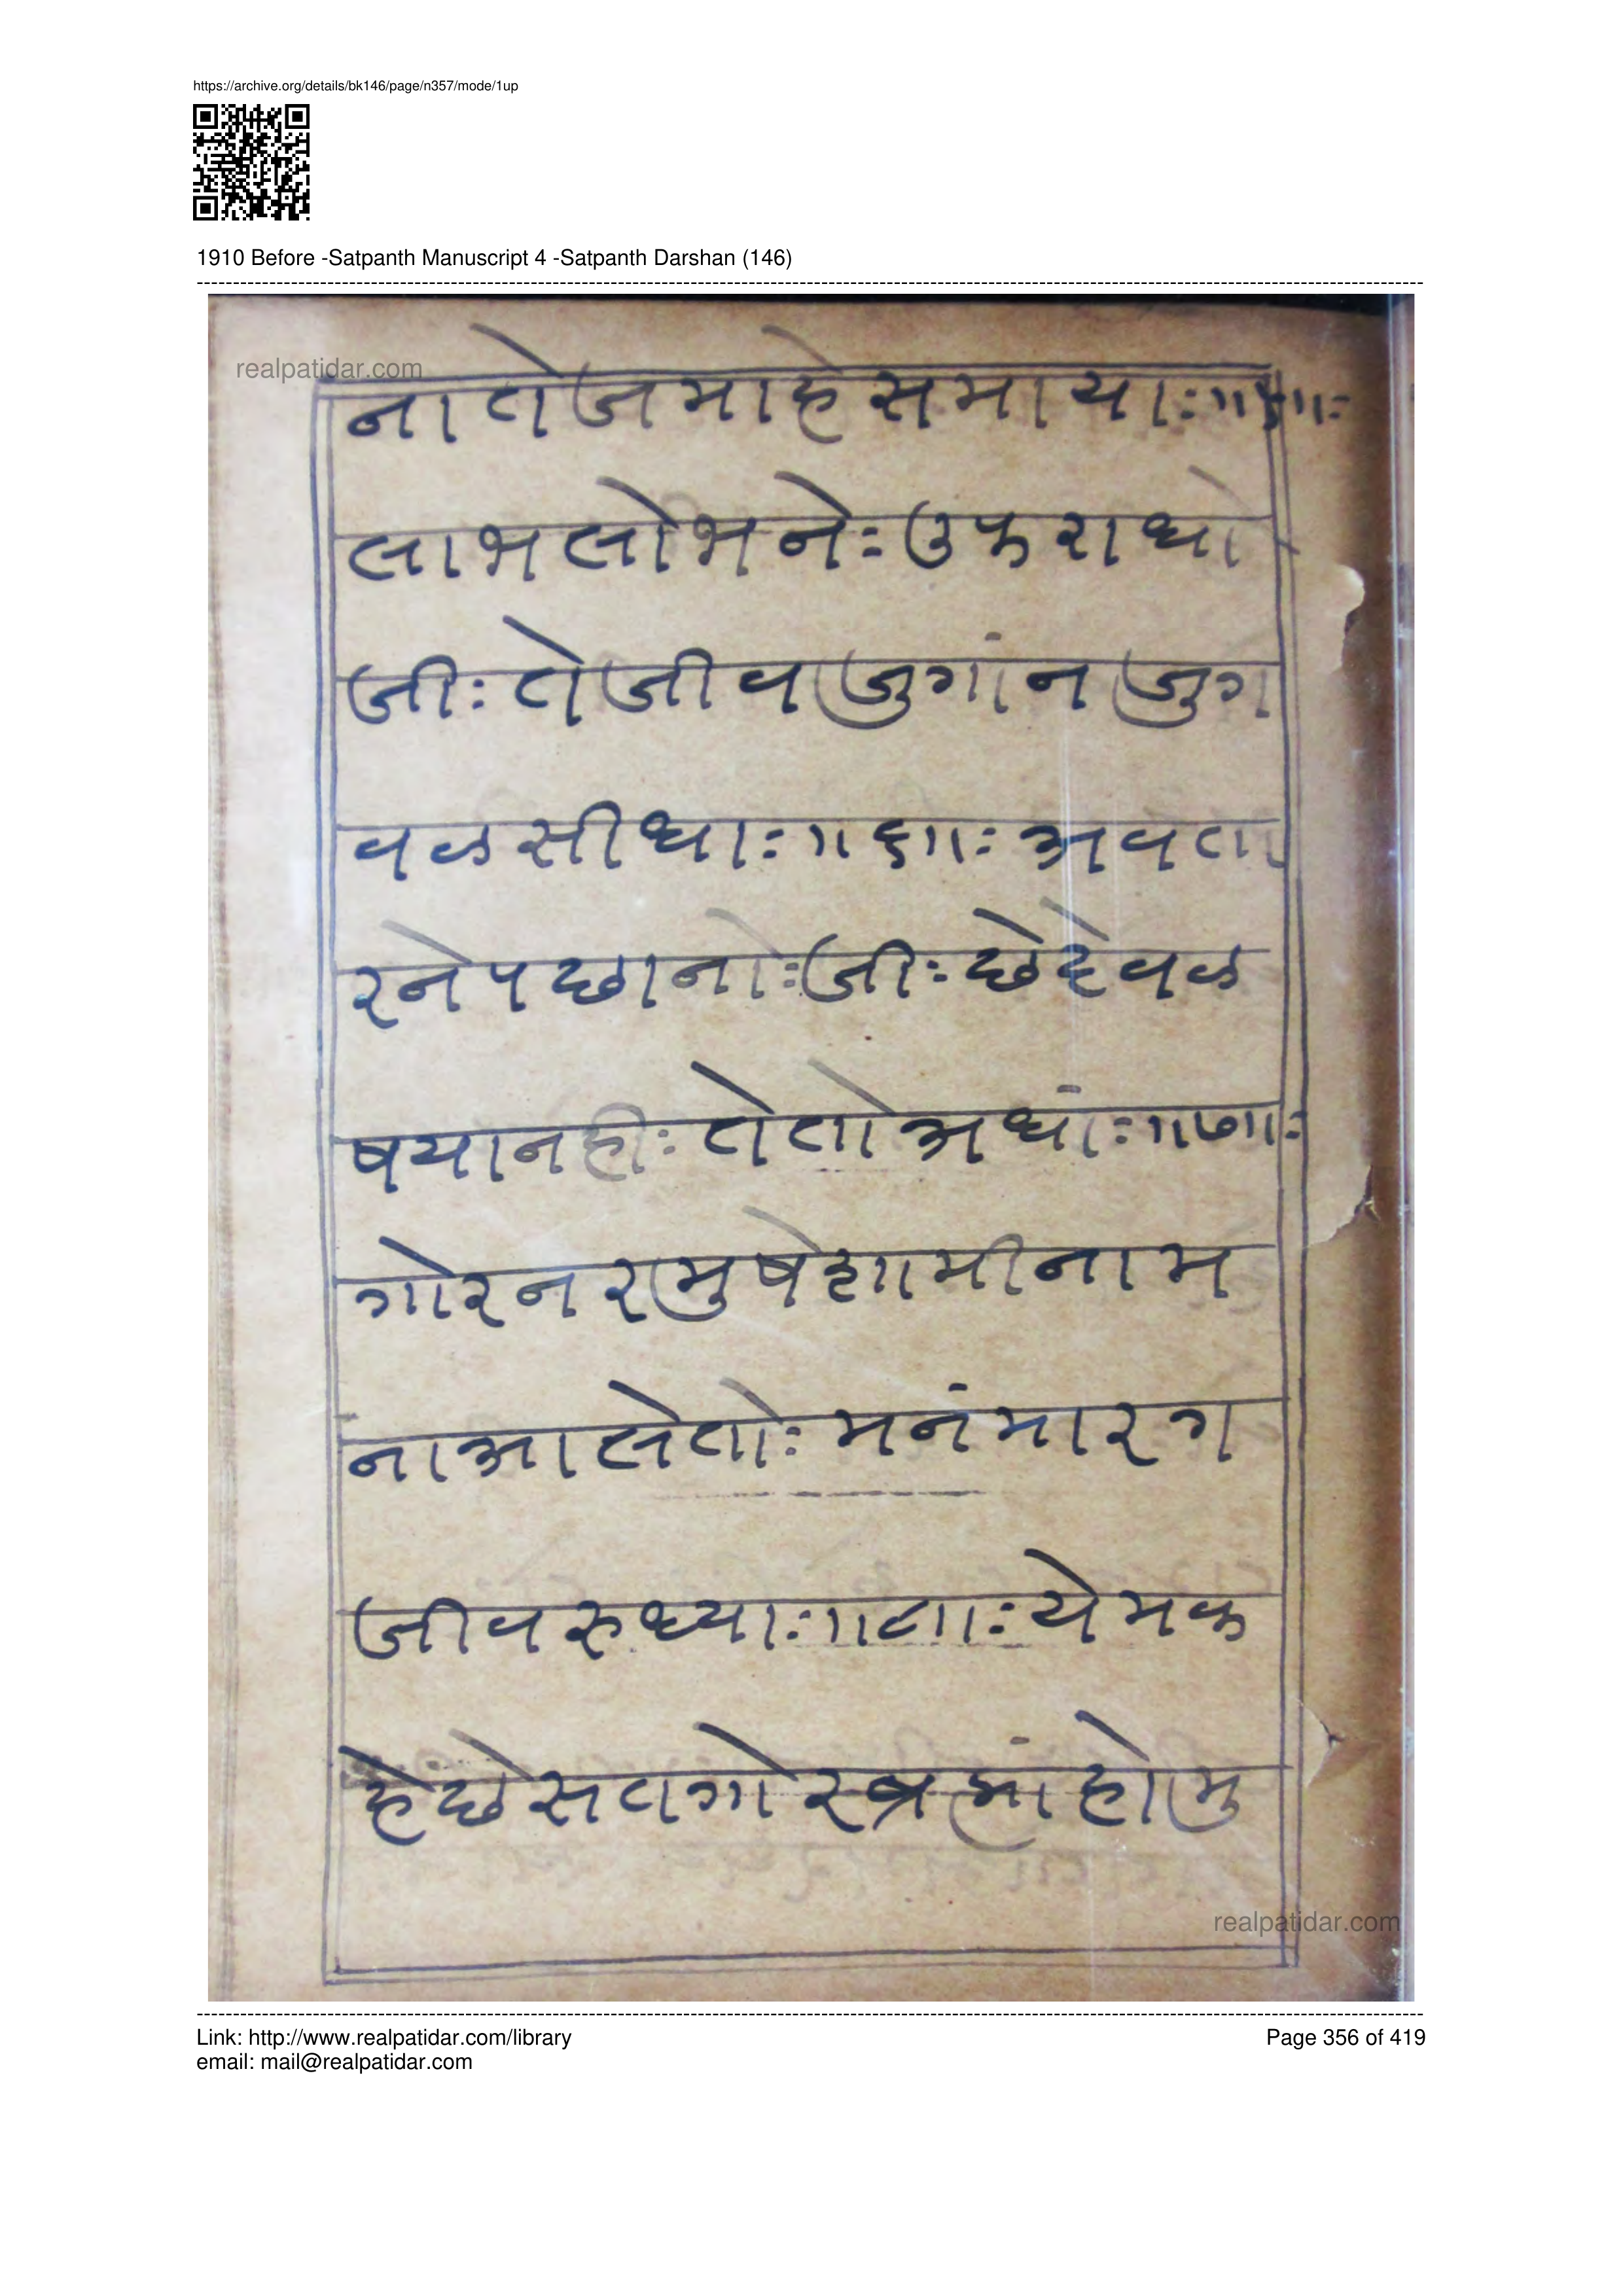 https://archive.org/details/bk146/page/n357/mode/1up
1910 Before -Satpanth Manuscript 4 -Satpanth Darshan (146)
realpatidar.com
ना तेज माहे समाया:॥५॥:
लाभ लोभ ने: उफराधो
जी: ते जीव जुगां न जुग
वळ सीधा:॥६॥: अवता
र ने पछानो: जी: छे देवळ
षया नही: ते तो अधां:॥७॥:
गोर नर मुषे शामी नाम
ना आलेतो: मनं मारग
जीव रुध्या:॥८॥: येम क
हे छे सतगोर ब्रह्मां हो मु
realpatidar.com
Link: http://www.realpatidar.com/library
Page 356 of 419
email: mail@realpatidar.com